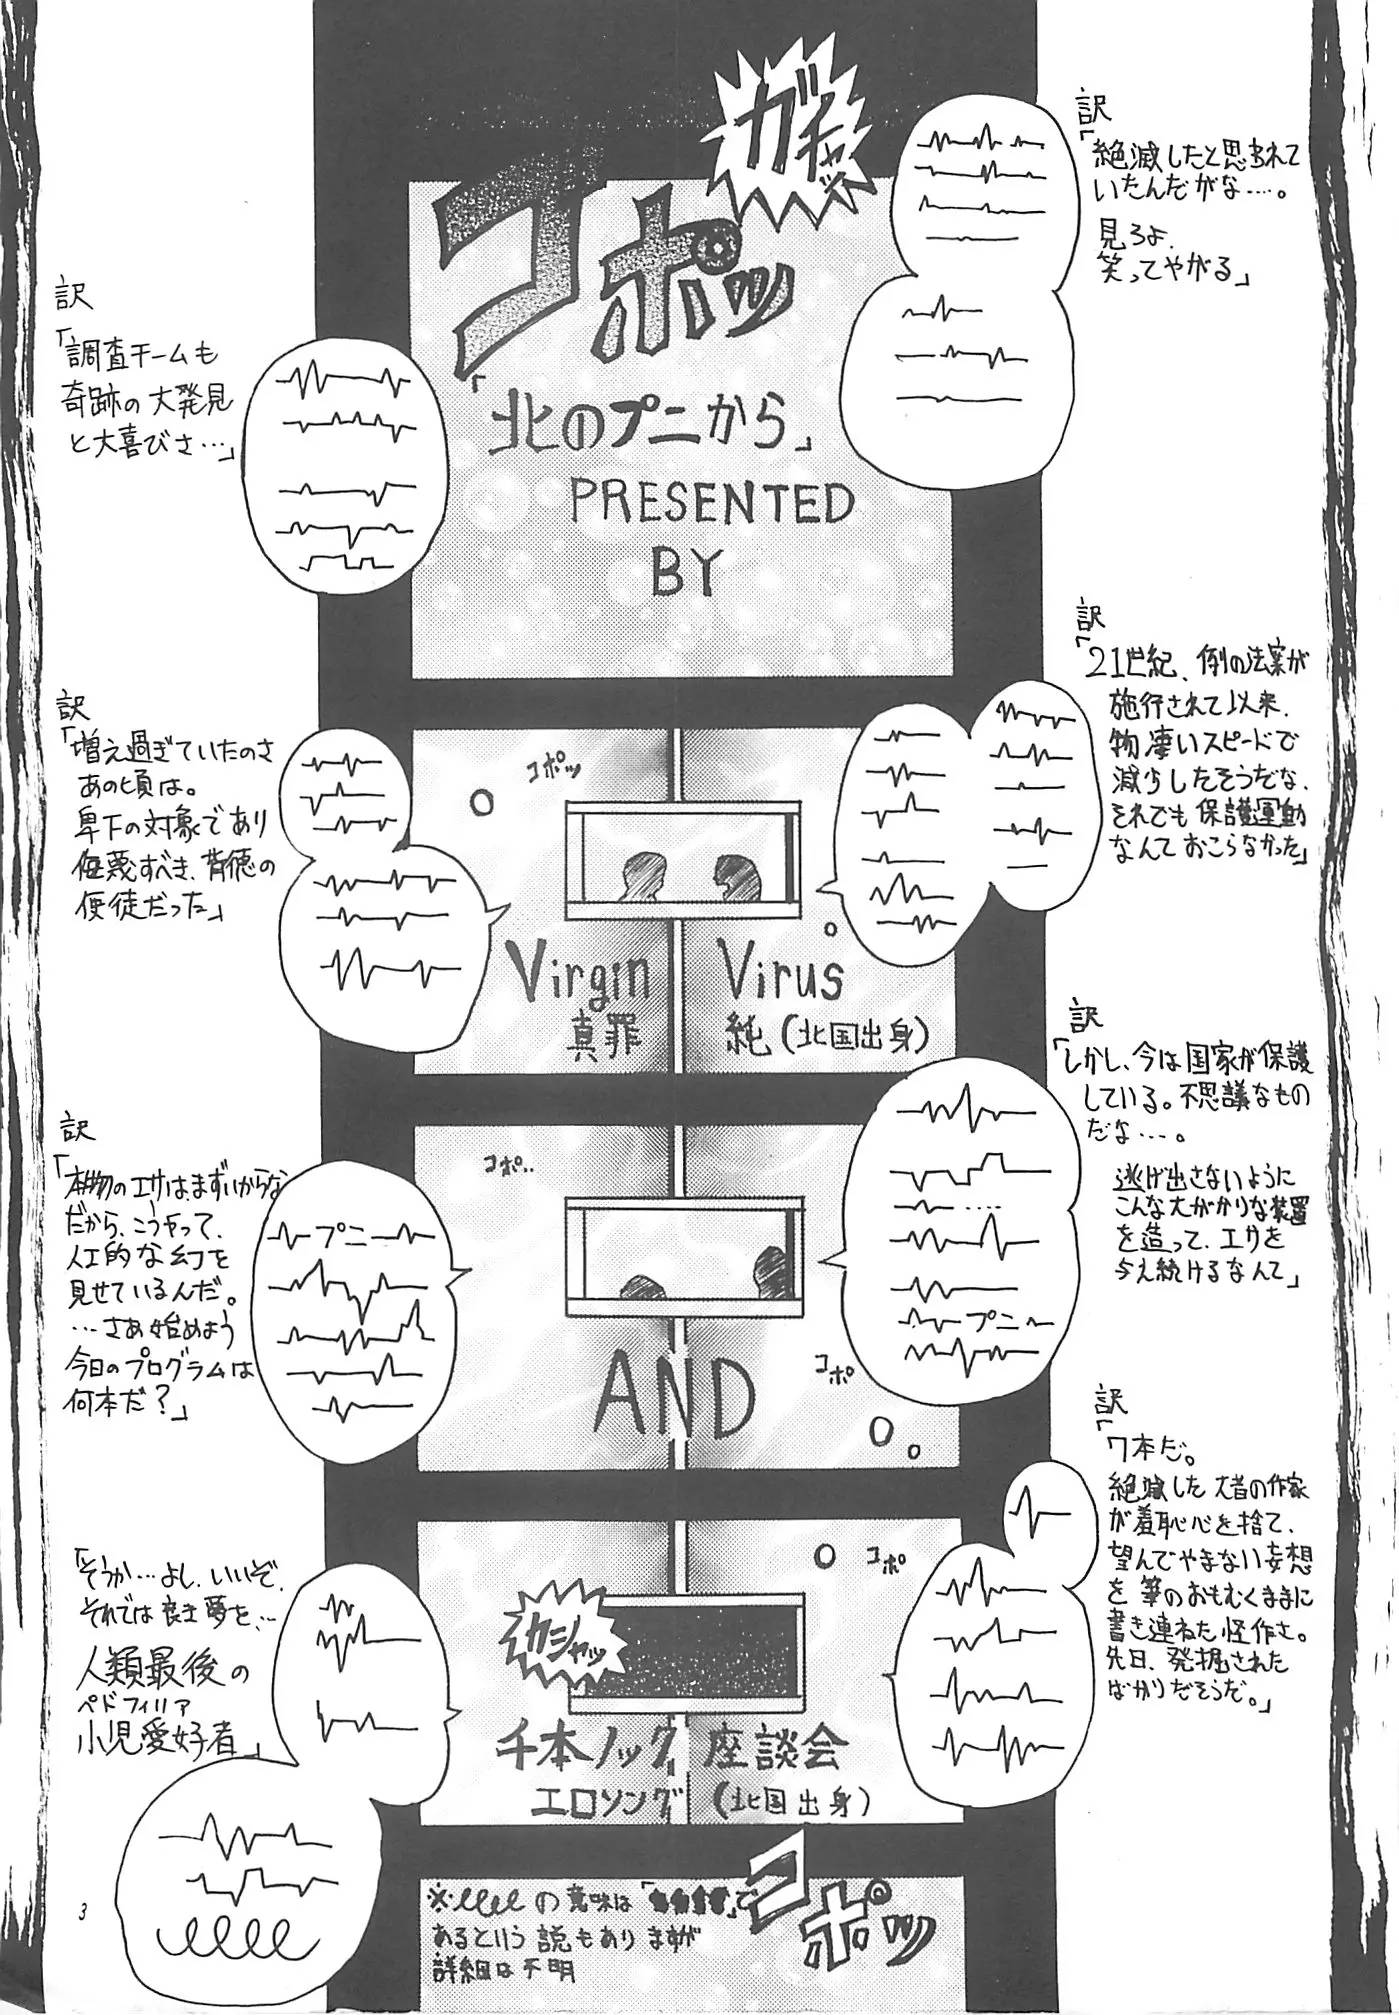 ガチャッ
コポッ
訳
「絶滅したと思われて
いたんだがな……。
見ろよ、
笑ってやがる」
訳
「調査チームも
奇跡の大発見
と大喜びさ…」
「北のプニから」
PRESENTED
BY
訳
「21世紀、例の法案が
施行されて以来、
物凄いスピードで
減少したそうだな、
それでも保護運動
なんておこらなかった」
訳
「増え過ぎていたのさ
あの頃は。
卑下の対象であり
侮蔑すべき、背徳の
使徒だった」
コポッ
Virgin Virus
真罪 純(北国出身)
訳
「しかし、今は国家が保護
している。不思議なもの
だな……。
逃げ出さないように
こんな大がかりな装置
を造って、エサを
与え続けるなんて」
プニ
訳
「本物のエサは、まずいからな
だから、こうやって、
人工的な幻を
見せているんだ。
…さあ始めよう
今日のプログラムは
何本だ?」
プニ
コポ..
コポ
AND
訳
「7本だ。
絶滅した大昔の作家
が羞恥心を捨て、
望んでやまない妄想
を筆のおもむくままに
書き連ねた怪作さ。
先日、発掘された
ばかりだそうだ。」
「そうか…よし、いいぞ、
それでは良き夢を…
人類最後の
ペドフィリア
小児愛好者」
コポ
カシャッ
千本ノック 座談会
エロソング (北国出身)
コポッ
※ の意味は「 」で
あるという説もありますが
詳細は不明
3